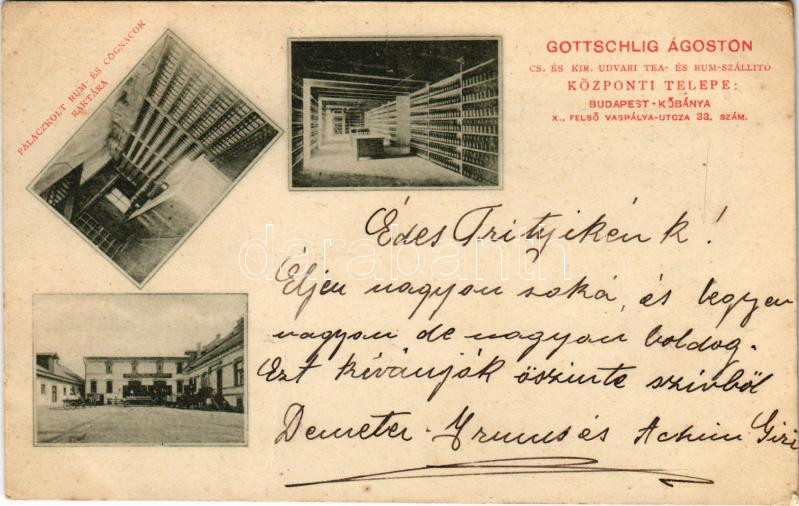 PALACZKOLT RUM- ÉS COGNACOK
RAKTÁRA
GOTTSCHLIG ÁGOSTON
CS. ÉS KIR. UDVARI TEA- ÉS RUM-SZÁLLITÓ
KÖZPONTI TELEPE:
BUDAPEST-KŐBÁNYA
X., FELSŐ VASPÁLYA-UTCZA 33. SZÁM.
Édes Trityikénk!
Éljen nagyon soká, és legyen
nagyon de nagyon boldog.
Ezt kívánják őszinte szívből
Demeter és Achim Gizi
darabanth